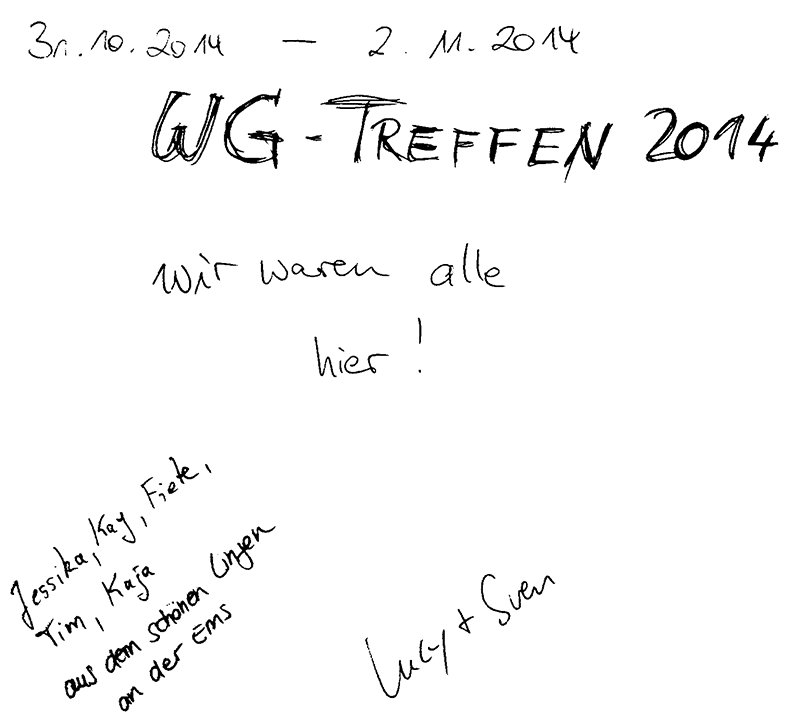 31.10.2014 – 2.11.2014
WG-TREFFEN 2014
wir waren alle
hier!
Jessika, Kay, Fiete,
Tim, Kaja
aus dem schönen Lingen
an der Ems
Lucy + Sven